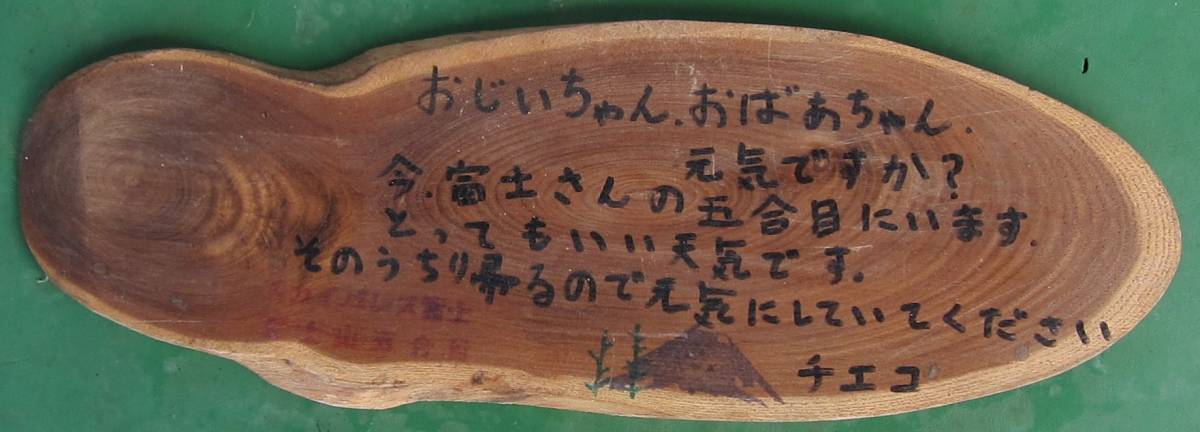 おじいちゃん.おばあちゃん.
元気ですか?
今.富士さんの五合目にいます.
とってもいい天気です.
そのうちり帰るので元気にしていてください
チエコ